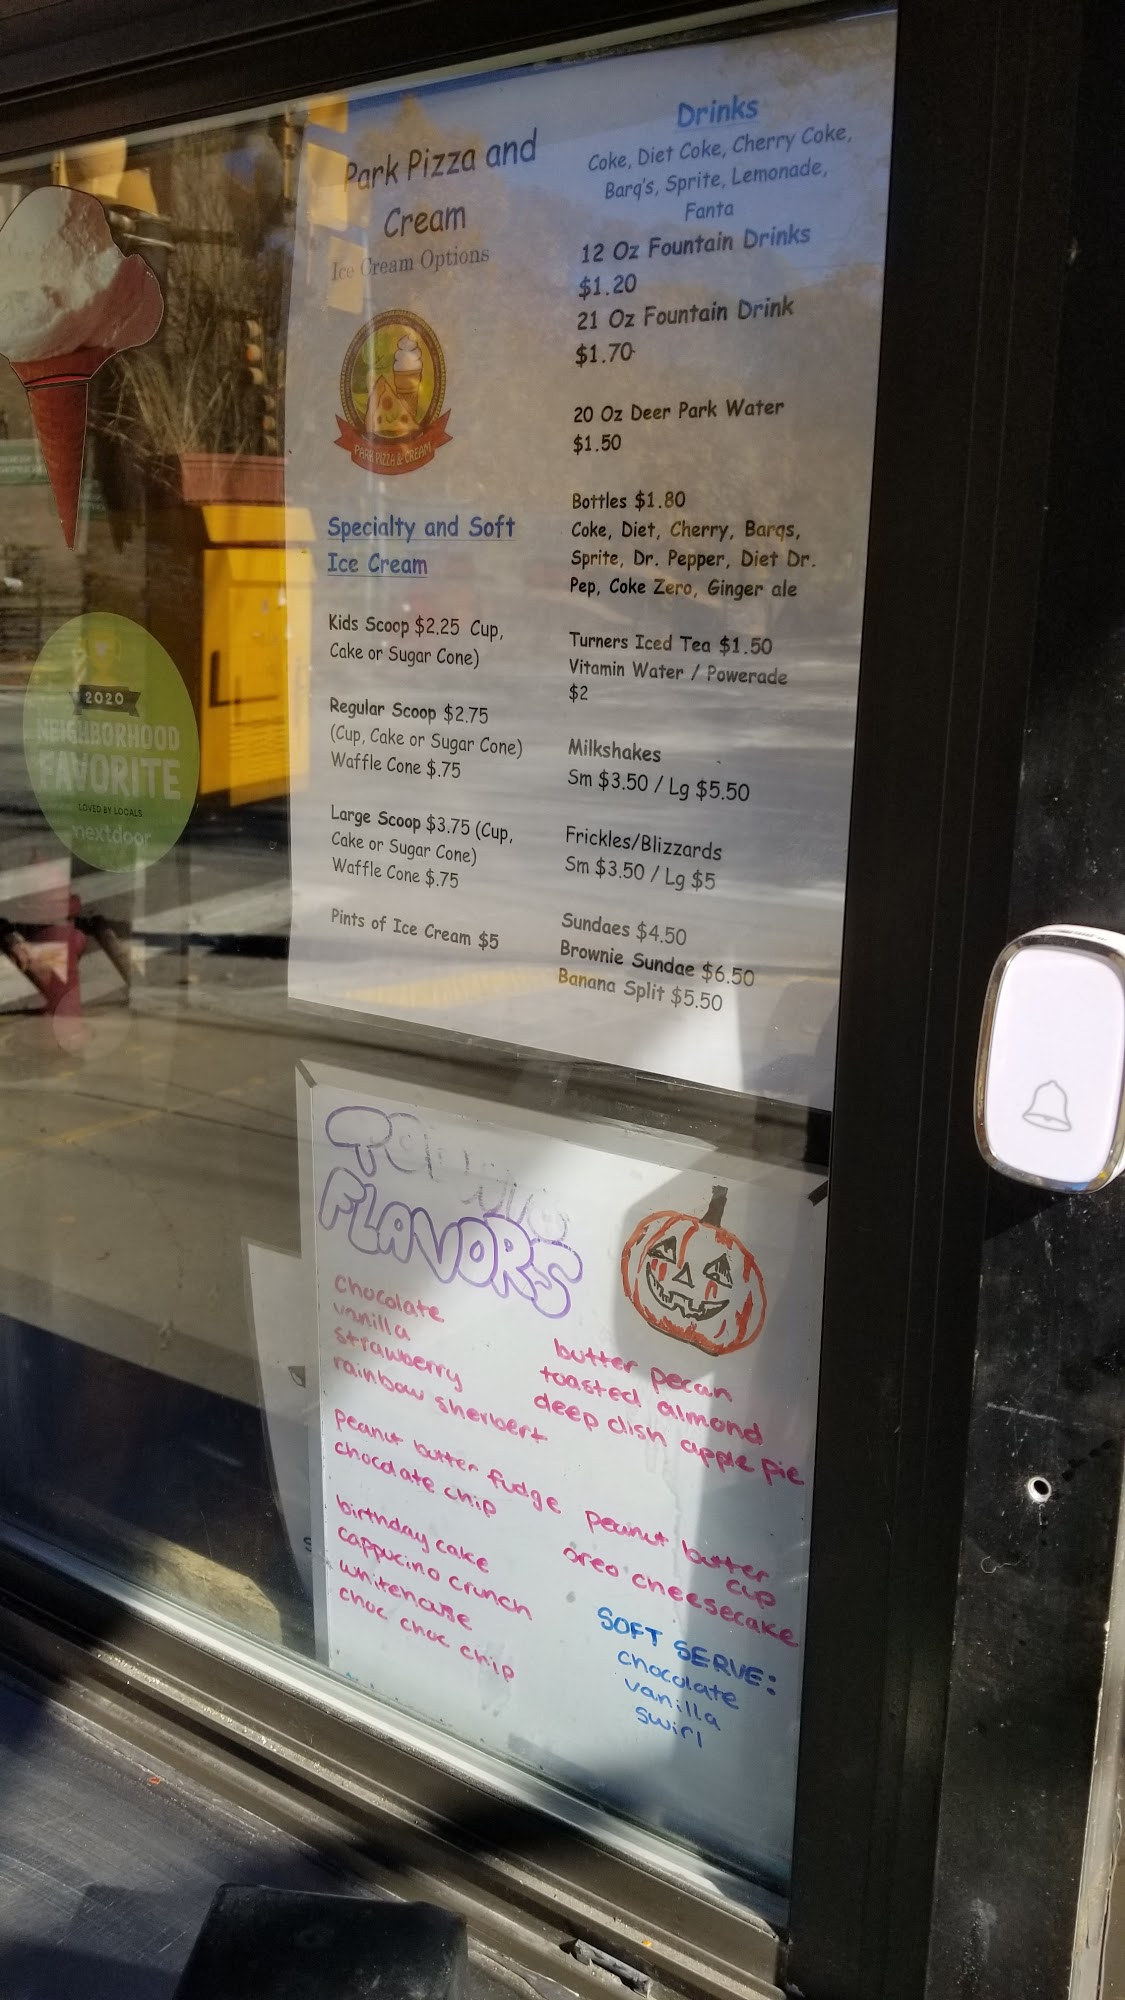 Park Pizza and
Cream
Ice Cream Options
PARK PIZZA & CREAM
Specialty and Soft
Ice Cream
Kids Scoop $2.25 Cup,
Cake or Sugar Cone)
Regular Scoop $2.75
(Cup, Cake or Sugar Cone)
Waffle Cone $.75
Large Scoop $3.75 (Cup,
Cake or Sugar Cone)
Waffle Cone $.75
Pints of Ice Cream $5
Drinks
Coke, Diet Coke, Cherry Coke,
Barq's, Sprite, Lemonade,
Fanta
12 Oz Fountain Drinks
$1.20
21 Oz Fountain Drink
$1.70
20 Oz Deer Park Water
$1.50
Bottles $1.80
Coke, Diet, Cherry, Barqs,
Sprite, Dr. Pepper, Diet Dr.
Pep, Coke Zero, Ginger ale
Turners Iced Tea $1.50
Vitamin Water / Powerade
$2
Milkshakes
Sm $3.50 / Lg $5.50
Frickles/Blizzards
Sm $3.50 / Lg $5
Sundaes $4.50
Brownie Sundae $6.50
Banana Split $5.50
2020
NEIGHBORHOOD
FAVORITE
LOVED BY LOCALS
nextdoor
FLAVORS
chocolate
vanilla
strawberry
rainbow sherbert
peanut butter fudge
chocolate chip
birthday cake
cappucino crunch
whitehouse
choc choc chip
butter pecan
toasted almond
deep dish apple pie
peanut butter
cup
oreo cheesecake
SOFT SERVE:
chocolate
vanilla
swirl